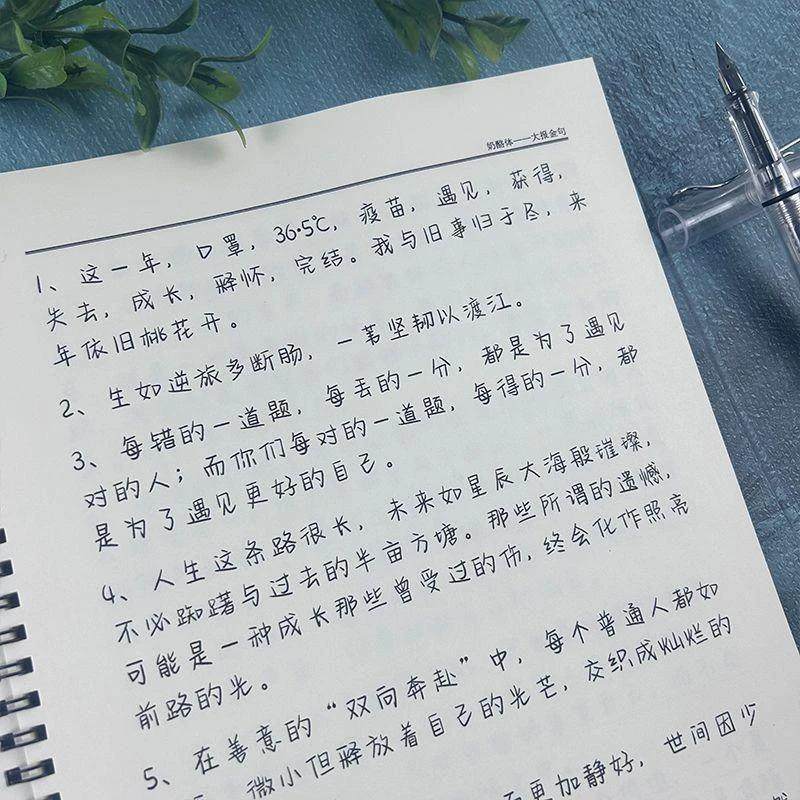 奶酪体——大报金句
1、这一年,口罩,36.5℃,疫苗,遇见,获得,
失去,成长,释怀,完结。我与旧事归于尽,来
年依旧桃花开。
2、生如逆旅多断肠,一苇坚韧以渡江。
3、每错的一道题,每丢的一分,都是为了遇见
对的人;而你们每对的一道题,每得的一分,都
是为了遇见更好的自己。
4、人生这条路很长,未来如星辰大海般璀璨,
不必踟躇与过去的半亩方塘。那些所谓的遗憾,
可能是一种成长那些曾受过的伤,终会化作照亮
前路的光。
5、在善意的“双向奔赴”中,每个普通人都如
微小但释放着自己的光芒,交织成灿烂的
更加静好,世间因少